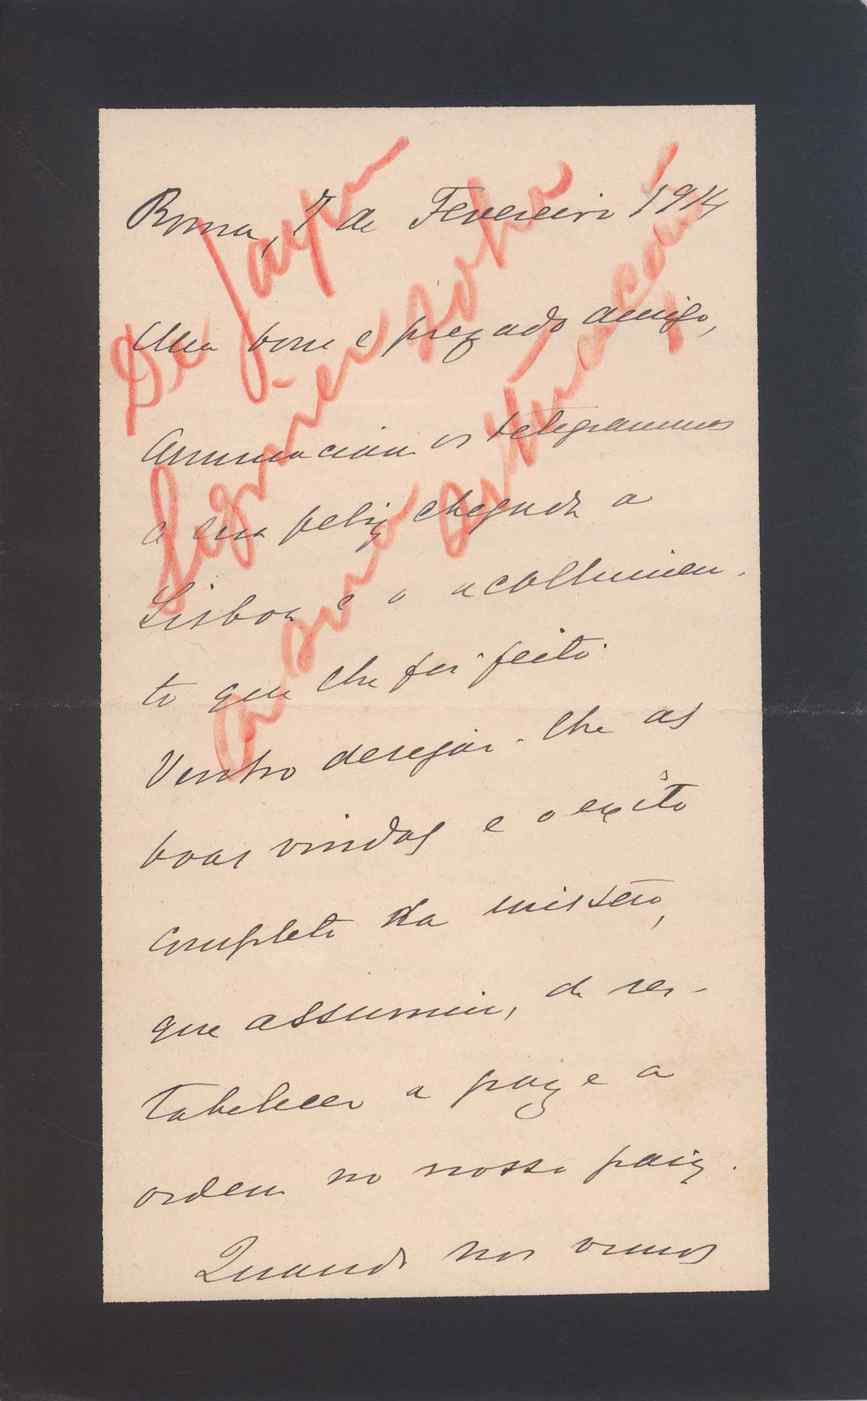 Roma, 7 de Fevereiro 1914
Meu bom e prezado amigo,
Annunciam os telegrammas
a sua feliz chegada a
Lisboa e o acolhimen-
to que lhe foi feito.
Venho desejar-lhe as
boas vindas e o exito
completo da missão,
que assumiu, de res-
tabelecer a paz e a
ordem no nosso paiz.
Quando nos vimos
De Jayme
Séguier sobre
a sua situação